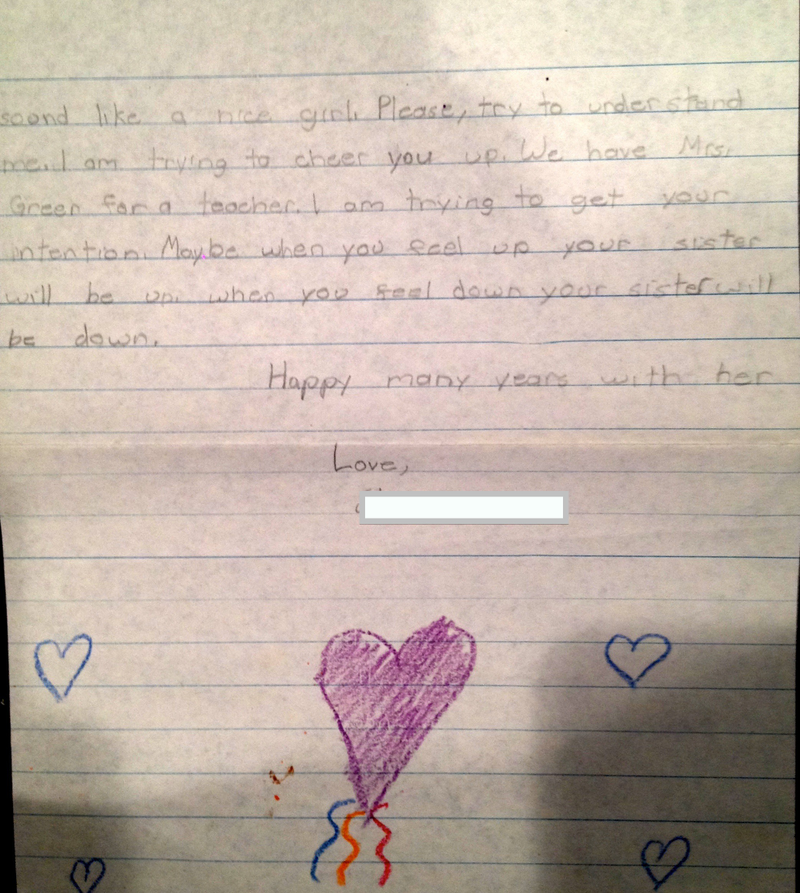 soond like a nice girl. Please, try to understand
me. I am trying to cheer you up. We have Mrs.
Green for a teacher. I am trying to get your
intention. Maybe when you feel up your sister
will be up. when you feel down your sister will
be down.
Happy many years with her
Love,